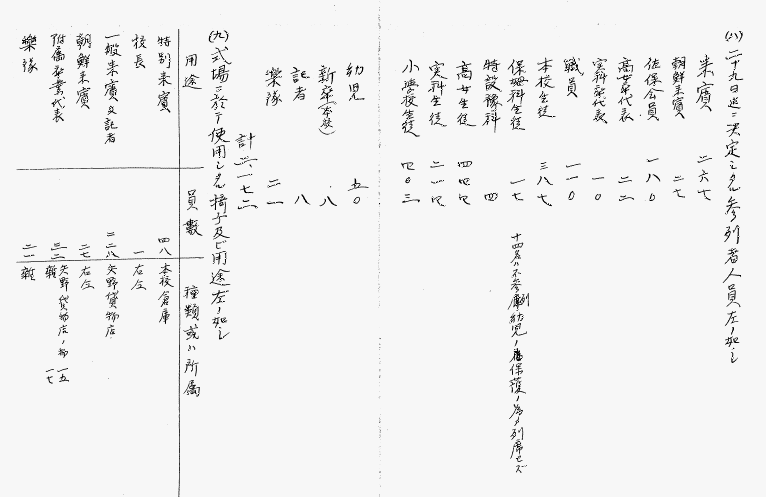 (八)二十九日迄ニ決定シタル参列者人員左ノ如シ
来賓 二六七
朝鮮来賓 二七
佐保会員 一八〇
高女代表 二二
実科代表 一〇
職員 一一〇
本校生徒 三八七
保姆科生徒 一七 十四名ハ不参列幼児ノ保護ノ為メ列席セズ
特設豫科 四
高女生徒 四四四
実科生徒 二一四
小学校生徒 四〇三
幼児 五〇
新卒(本校) 八
記者 八
楽隊 二一
計 二、一七二
(九)式場ニ於テ使用シタル椅子及ビ用途左ノ如シ
用途 員數 種類或ハ所属
特別来賓 四八 本校倉庫
校長 一 右仝
一般来賓及記者 二二八 矢野貸物店
朝鮮来賓 二七 右仝
附属卒業代表 三二 矢野貸物店ノ物 一五 雜 一七
樂隊 二一 雜